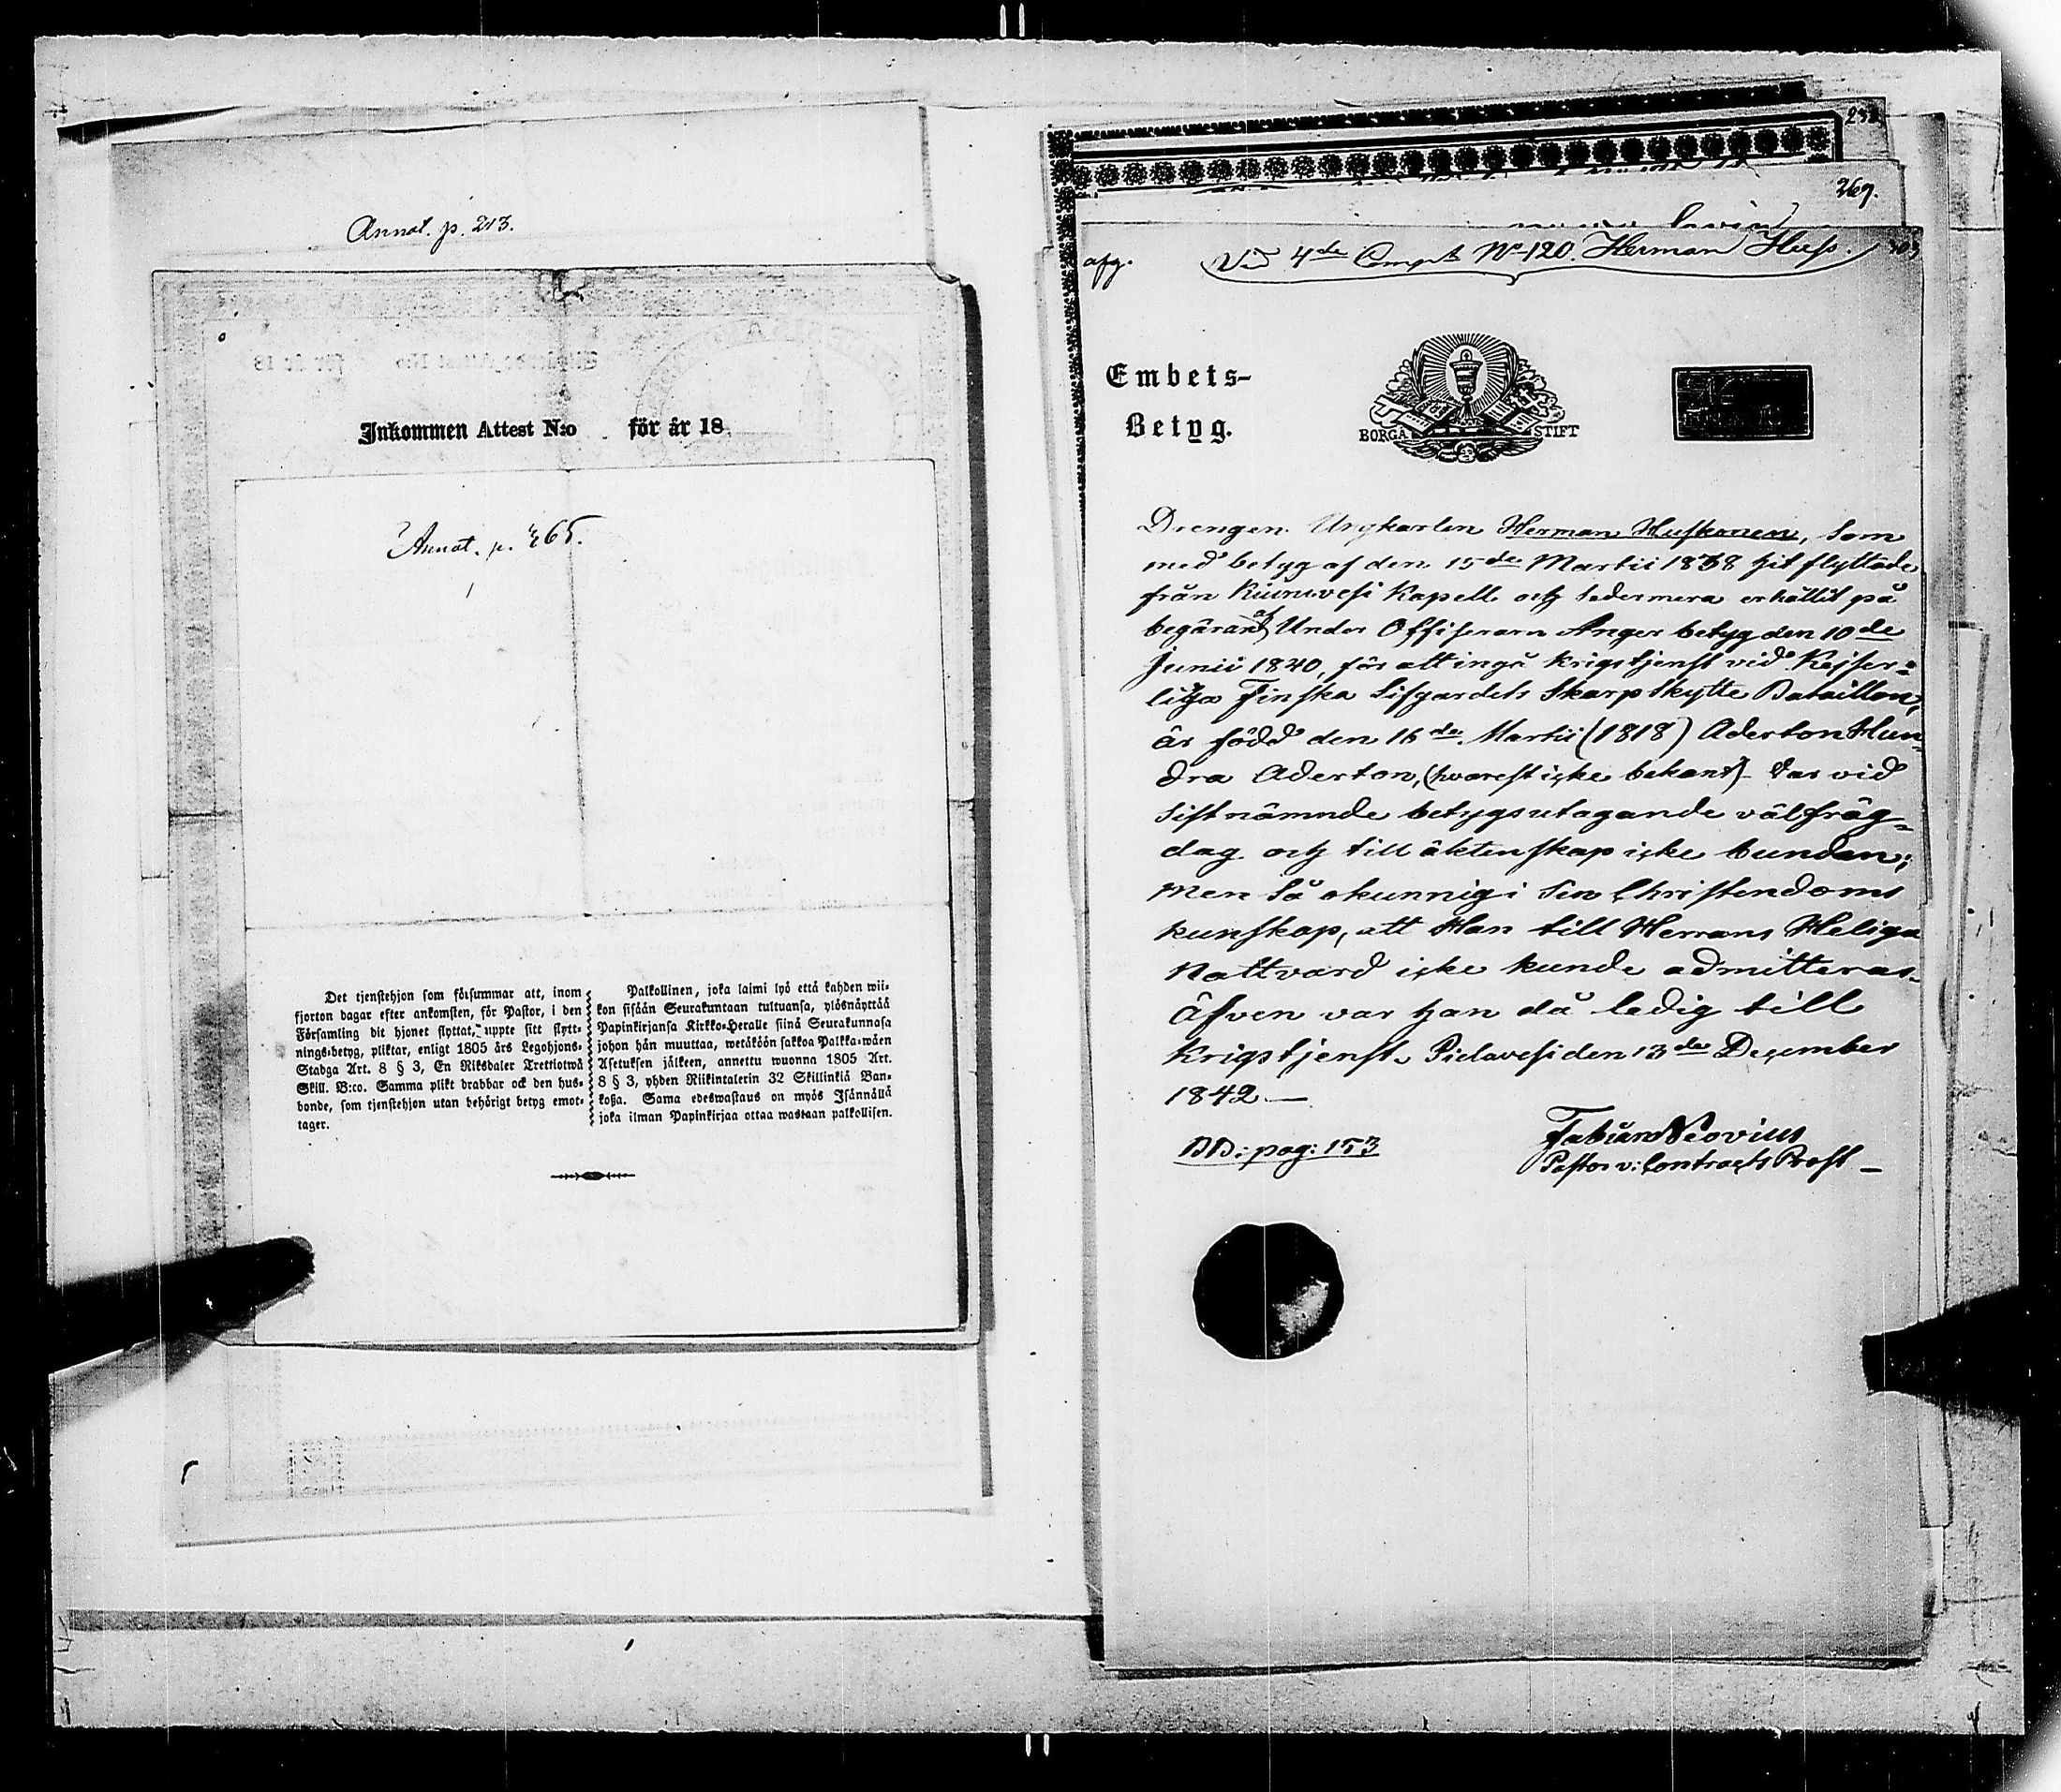 Annot. p. 213.
Inkommen Attest N:o för år 18
Annot. p. 365.
Det tjenstehjon som försummar att, inom
fjorton dagar efter ankomsten, för Pastor, i den
Församling dit hjonet flyttat, uppte sitt flytt-
nings-betyg, pliktar, enligt 1805 års Legohjons-
Stadga Art. 8 § 3, En Riksdaler Trettiotwå
Skill. B:co. Samma plikt drabbar ock den hus-
bonde, som tjenstehjon utan behörigt betyg emot-
tager.
Palkollinen, joka laimi lyö että kahden wii-
kon sisään Seurakuntaan tultuansa, ylösnäyttää
Papinkirjansa Kirkko-Heralle siinä Seurakunnasa
johon hän muuttaa, wetäköön sakkoa Palkka-wäen
Asetuksen jälkeen, annettu wuonna 1805 Art.
8 § 3, yhden Riikintalerin 32 Skillinkiä Ban-
koßa. Sama edeswastaus on myös Isännällä
joka ilman Papinkirjaa ottaa wastaan palkollisen.
232
269.
afg. Vid 4de Comp. No 120. Herman Huss. 303
Embets-
Betyg.
BORGÅ STIFT
Drengen Ungkarlen Herman Huskonen, som
med betyg af den 15de Martii 1838 hit flyttade
från Kiuruvesi Kapell och sedermera erhållit på
begäran af Under Officeraren Anger betyg den 10de
Junii 1840, för att ingå krigstjenst vid Kejser-
liga Finska Lifgardets Skarpskytte Bataillon,
är född den 16de Martii (1818) Aderton Hun-
dra Aderton, (hvarest icke bekant) var vid
sistnämnde betygsutagande välfräg-
dad och till äktenskap icke bunden;
men så okunnig i sin Christendoms
kunskap, att Han till Herrans Heliga
Nattvard icke kunde admitteras.
Äfven var han då ledig till
Krigstjenst. Pielavesi den 13de December
1842.—
DD: pag: 153
Fabian Neovius
Pastor v: Contracts Prost —